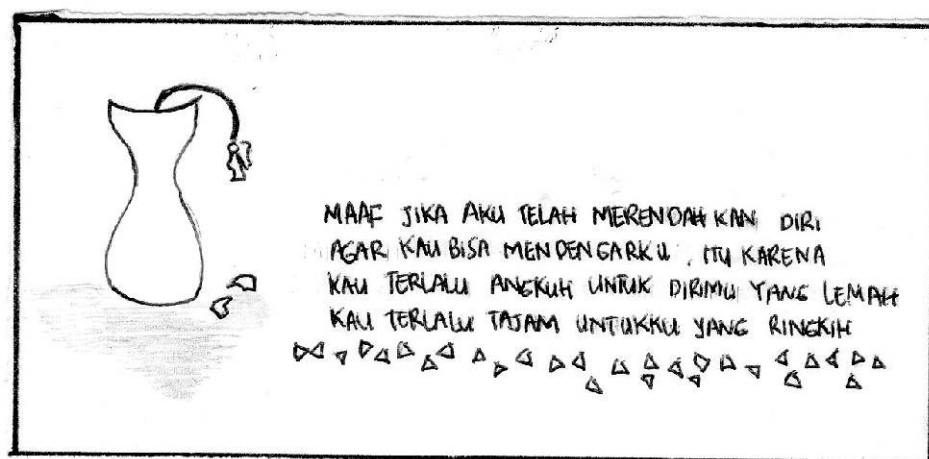 MAAF JIKA AKU TELAH MERENDAHKAN DIRI
AGAR KAU BISA MENDENGARKU. ITU KARENA
KAU TERLALU ANGKUH UNTUK DIRIMU YANG LEMAH
KAU TERLALU TAJAM UNTUKKU YANG RINGKIH